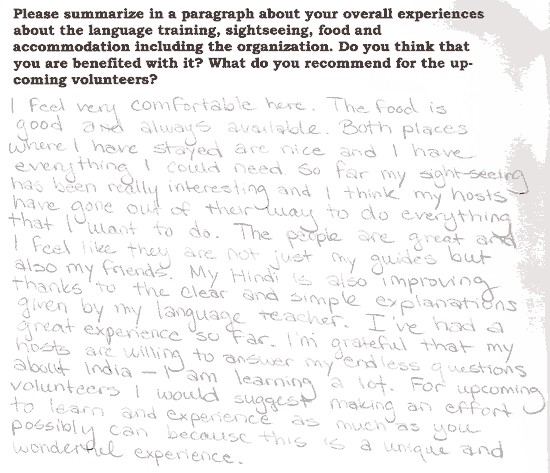 Please summarize in a paragraph about your overall experiences
about the language training, sightseeing, food and
accommodation including the organization. Do you think that
you are benefited with it? What do you recommend for the up-
coming volunteers?
I feel very comfortable here. The food is
good and always available. Both places
where I have stayed are nice and I have
everything I could need. So far my sight-seeing
has been really interesting and I think my hosts
have gone out of their way to do everything
that I want to do. The people are great and
I feel like they are not just my guides but
also my friends. My Hindi is also improving
thanks to the clear and simple explanations
given by my language teacher. I've had a
great experience so far. I'm grateful that my
hosts are willing to answer my endless questions
about India - I am learning a lot. For upcoming
volunteers I would suggest making an effort
to learn and experience as much as you
possibly can because this is a unique and
wonderful experience.